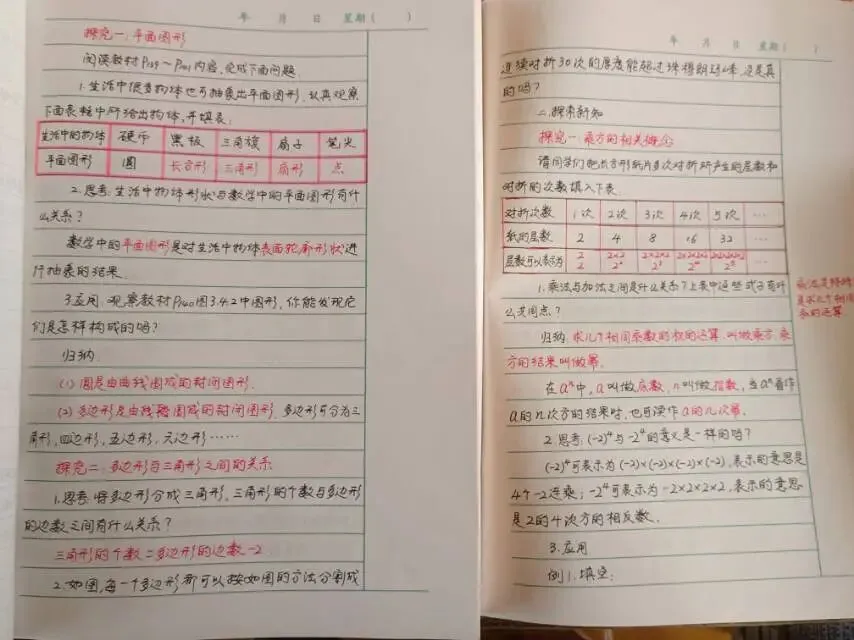 年 月 日 星期( )
探究一:平面图形
阅读教材P139~P141内容,完成下面问题
1.生活中很多物体也可抽象出平面图形,认真观察
下面表格中所给出物体,并填表:
生活中的物体 硬币 黑板 三角旗 扇子 笔尖
平面图形 圆 长方形 三角形 扇形 点
2.思考:生活中物体形状与数学中的平面图形有什
么关系?
数学中的平面图形是对生活中物体表面轮廓形状进
行抽象的结果.
3.应用:观察教材P140图3.4.2中图形,你能发现它
们是怎样构成的吗?
归纳
(1)圆是由曲线围成的封闭图形.
(2)多边形是由线段围成的封闭图形,多边形可分为三
角形,四边形,五边形,六边形……
探究二:多边形与三角形之间的关系
1.思考:将多边形分成三角形,三角形的个数与多边形
的边数之间有什么关系?
三角形的个数=多边形的边数-2
2.如图,每一个多边形都可以按如图的方法分割成
年 月 日 星期( )
连续对折30次的厚度能超过珠穆朗玛峰,这是真
的吗?
二.探索新知
探究一:乘方的相关概念
请同学们把长方形纸片多次对折所产生的层数和
对折的次数填入下表.
对折次数 1次 2次 3次 4次 5次 …
纸的层数 2 4 8 16 32 …
层数可以表示为 2 2×2 2×2×2 2×2×2×2 2×2×2×2×2 …
2 2² 2³ 2⁴ 2⁵
1.乘法与加法之间是什么关系?上表中这些式子有什
么共同点?
归纳:求几个相同乘数的积的运算,叫做乘方,乘
方的结果叫做幂.
在aⁿ中,a叫做底数,n叫做指数,当aⁿ看作
a的n次方的结果时,也可读作a的n次幂.
2.思考:(-2)⁴与-2⁴的意义是一样的吗?
(-2)⁴可表示为(-2)×(-2)×(-2)×(-2),表示的意思是
4个-2连乘;-2⁴可表示为-2×2×2×2,表示的意思
是2的4次方的相反数.
3.应用
例1.填空:
是求几个相同
的运算